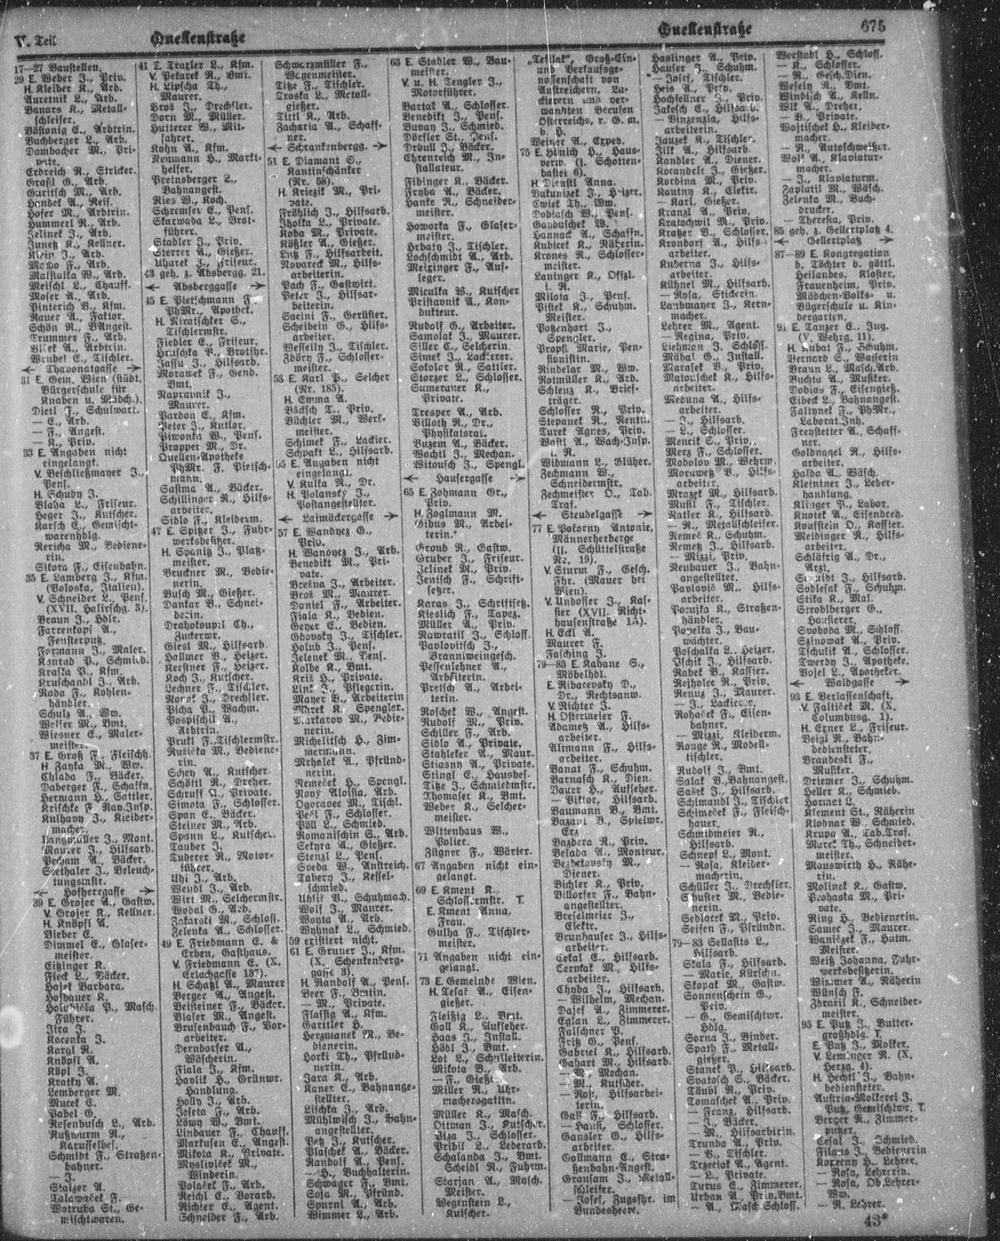 V. Teil
Quellenstraße
Quellenstraße
675
17—27 Baustellen.
29 E. Weber J., Priv.
H. Kleiber K., Arb.
Auretnil L., Arb.
Banars K., Metall-
schleifer.
Buchberger L., Arb.
Dambacher M., Pri-
vate.
Erdreich R., Stricker.
Graßl G., Arb.
Garisch M., Arb.
Hofer M., Arbtrin.
Hummerl R., Arb.
Jelinek J., Arb.
Klein J., Arb.
Meischl L., Chauff.
Moser A., Arb.
Pinterich B., Kfm.
Bauer A., Faktor.
Schön R., BAngest.
Trummer F., Arb.
Wrubel E., Tischler.
← Thavonatgasse →
31 E. Gem. Wien (städt.
Bürgerschule für
Knaben u. Mädch.).
Dietl J., Schulwart.
— E., Arb.
— F., Angest.
— R., Priv.
33 E. Angaben nicht
eingelangt.
V. Beschließmayer J.,
Pens.
H. Schuby J.
Blaha L., Friseur.
Heger J., Kutscher.
Karsch E., Gemischt-
warenhdlg.
Rericha M., Bediene-
rin.
Sikora F., Eisenbahn.
35 E. Lamberg J., Kfm.
(Voloska, Italien).
V. Schneider L., Pens.
(XVII, Halirschg. 5).
Braun J., Hdlr.
Farrentopf A.,
Fensterputz.
Formann J., Maler.
Konrad P., Schmied.
Kraska P., Kfm.
Kruschandl J., Arb.
Rada F., Kohlen-
händler.
Schulz A., Ww.
Welser M., Bmt.
Wiesner E., Maler-
meister.
37 E. Groß F., Fleischh.
H. Zanka M., Ww.
Chlada F., Bäcker.
Daberger F., Schaffn.
Hermann H., Sattler.
Kritschke F. Rav.Insp.
Kulhavy J., Kleider-
macher.
Langmüller J., Mont.
Maurer J., Hilfsarb.
Pecham A., Bäcker.
Seethaler J., Beleuch-
tungsmstr.
← Hofherrgasse →
39 E. Grojer A., Gastw.
V. Grojer K., Kellner.
H. Knöpfl A.
Bieber E.
Dimmel E., Glaser-
meister.
Eißinger K.
Fleck L., Bäcker.
Hajek Barbara.
Hofbauer K.
Führer.
Jira J.
Kocenka J.
Kargl R.
Knöpfl A.
Köpl J.
Kratky A.
Lemberger M.
Mucek E.
Pabel G.
Rosenbusch L., Arb.
Rußwurm R.,
Karusselbes.
Schmidt F., Straßen-
bahner.
— J.
Stalzer A.
Talawaček F.
Wotruba St., Ge-
mischtwaren.
41 E. Traxler L., Kfm.
V. Pekarek R., Bmt.
H. Lipscha Th.,
Maurer.
Bora J., Drechsler.
Dorn M., Müller.
Hutterer W., Mit-
fahrer.
Kohn A., Kfm.
Neumann H., Markt-
helfer.
Preinsberger L.,
Bahnangest.
Ries W., Koch.
Schremser E., Pens.
Skarwada L., Brot-
führer.
Stadler J., Priv.
Sterrer A., Gießer.
Uharek J., Friseur.
43 geh. z. Absbergg. 21.
← Absberggasse →
45 E. Pietschmann F.,
PhMr., Apothek.
H. Kiratschker S.,
Tischlermstr.
Fiedler E., Friseur.
Hraschka P., Brotfhr.
Jassu J., Hilfsarb.
Morawek F., Gend.
Bmt.
Napravnik J.,
Maurer.
Pardon E., Kfm.
Peter J., Kutlor.
Piwonka W., Pens.
Propper M., Dr.
Quellen-Apotheke
PhMr. F. Pietsch-
mann.
Sasima A., Bäcker.
Schillinger R., Hilfs-
arbeiter.
Sidlo F., Kleiderm.
47 E. Spitzer J., Fuhr-
werksbesitzer.
H. Spanitz J., Platz-
meister.
Bruckner M., Bedie-
nerin.
Busch M., Gießer.
Dantar B., Schnei-
derin.
Drahokoupil Ch.,
Zuckerwr.
Giesl M., Hilfsarb.
Hollner B., Heizer.
Kerstner F., Heizer.
Koch J., Kutscher.
Lechner F., Tischler.
Picha P., Wachm.
Pospischil A.,
Arbtrin.
Prukl F., Tischlermstr.
Ruzicka M., Bediene-
rin.
Schen A., Kutscher.
Schöttl R., Dreher.
Simota F., Schlosser.
Span E., Bäcker.
Steiner M., Arb.
Spann L., Kutscher.
Tauber J.
Tuderer R., Motor-
führer.
Uhi J., Arb.
Wendl J., Arb.
Wirt M., Selchermstr.
Wodal G., Arb.
Zakarski M., Schloss.
Zelenka A., Schlosser.
49 E. Friedmann E. &
Erben, Gasthaus.
V. Friedmann E. (X.
Erlachgasse 137).
H. Schaßl A., Maurer
Berger A., Angest.
Berisleiner F., Bäcker.
Blaser M., Angest.
Brusenbauch F., Vor-
arbeiter.
Derndorfer A.,
Wäscherin.
Fiala J., Kfm.
Havlik H., Grünwr.
Handlung.
Holly J., Arb.
Joseta F., Arb.
Löwy W., Bmt.
Lindauer F., Chauff.
Markusen E., Angest.
Mikota K., Private.
Myslivšek M.,
Winderin.
Polaček F., Arb.
Reichl E., Vorarb.
Richter E., Agent.
Schneider F., Arb.
Schwarzmüller F.,
Wagenmeister.
Titze F., Tischler.
Troska L., Metall-
gießer.
Tittl K., Arb.
Zacharia A., Schaff-
ner.
← Schrankenbergg. →
51 E. Diamant S.,
Kantinschänker
(Nr. 58).
H. Kriezik M., Pri-
vate.
Fröhlich J., Hilfsarb.
Koba M., Private.
Kößler A., Gießer.
Lutz F., Hilfsarbeit.
Novarek M., Hilfs-
arbeiterin.
Pach F., Gastwirt.
Peter J., Hilfsar-
beiterin.
Sacini F., Gerüster.
Scheibein G., Hilfs-
arbeiter.
Wesselin J., Tischler.
Zbory F., Schlosser-
meister.
53 E. Karl P., Selcher
(Nr. 185).
H. Emma A.
Bäcksch T., Priv.
Büchler M., Werk-
meister.
Schimek F., Lackier.
Schpakt L., Hilfsarb.
55 E. Angaben nicht
eingelangt.
V. Kulka R., Dr.
H. Polansky J.,
Postangestellter.
← Laimäckergasse →
57 E. Wandycz G.,
Priv.
H. Wanduez J., Arb.
Benedikt M., Pri-
vate.
Brežna J., Arbeiter.
Broz M., Maurer.
Daniel F., Arbeiter.
Fiala K., Bedien.
Geyer E., Bedien.
Gbovsky J., Tischler.
Holub J., Pens.
Jelenek M., Pens.
Kolbe K., Bmt.
Kriz H., Private.
Link J., Pflegerin.
Mayer V., Arbeiterin
Marek K., Spengler.
Markarov M., Bedie-
nerin.
Michelitsch H., Zim-
mermann.
Mrhalek A., Pfründ-
nerin.
Nemeček H., Spengl.
Nový Aloisia, Arb.
Ogorovec M., Tischl.
Pešl F., Schlosser.
Pöll L., Schmied.
Romanischin S., Arb.
Sekyra A., Gießer.
Stenzl L., Pens.
Sveda W., Anstreich.
Tabery J., Kessel-
schmied.
Uhlir B., Schuhmach.
Wolf J., Maurer.
Woyta A., Arb.
Wyhnak L., Schmied.
59 existiert nicht.
61 E. Gruner J., Kfm.
(X., Schenkenberg-
gasse 3).
H. Randolf A., Pens.
Beer F., Bmtin.
— M., Private.
Flassig A., Kfm.
Gartller H.
Herzmanek M., Be-
dienerin.
Horki Th., Pfründ-
nerin.
Jara K., Arb.
Kaner E., Bahnange-
stellter.
Lischka J., Arb.
Mühlwisch J., Bahn-
angestellter.
Petz J., Kutscher.
Plaschek A., Bäcker.
Randolf A., Pens.
— H., Buchhalterin.
Schwager F., Bmt.
Soja M., Pfründ.
Spurni A., Arb.
Wimmer L., Arb.
63 E. Stadler W., Bau-
meister.
V. u. H. Tengler J.,
Motorführer.
Bartak A., Schlosser.
Benedikt J., Pens.
Buvay J., Schmied.
Dörfler St., Pens.
Drbull J., Bäcker.
Ehrenreich M., In-
stallateur.
Fibinger K., Bäcker.
Fryba A., Bäcker.
Hanke R., Schneider-
meister.
Howorka F., Glaser-
meister.
Hrbaty J., Tischler.
Lochschmidt A., Arb.
Meizinger F., Auf-
leger.
Miculka W., Kutscher
Pristavnik A., Kon-
dukteur.
Rudolf G., Arbeiter.
Samolat J., Maurer.
Siller E., Selcherin.
Simek J., Lackierer.
Sokolor R., Sattler.
Storzer L., Schlosser.
Sumerauer K.,
Private.
Tresper A., Arb.
Villoth R., Dr.,
Physikatsrat.
Buzem A., Bäcker.
Wachtl J., Mechan.
Witousch J., Spengl.
← Hausergasse →
65 E. Zohmann Gr.,
Priv.
H. Zoglmann M.
Gibus M., Arbei-
terin.
Groub R., Gastw.
Gruber J., Friseur.
Jelinek M., Priv.
Jenisch F., Schrift-
setzer.
Karas J., Schriftsetz.
Kieslich F., Tapez.
Müller A., Priv.
Nawratil J., Schloss.
Pavlovitsch J.,
Branntweingesch.
Pessenlehner A.,
Arbeiterin.
Pretsch A., Arbei-
terin.
Roschek W., Angest.
Rudolf M., Priv.
Schiller F., Arb.
Sidlo A., Private.
Stahleker A., Maur.
Stiasny A., Private.
Stingl E., Hausbes.
Titz J., Schmiedmstr.
Thomaser K., Bmt.
Weber K., Selcher-
meister.
Wittenhaus W.,
Polier.
Zügner F., Wärter.
67 Angaben nicht ein-
gelangt.
69 E. Kment K.,
Schlossermstr. T.
E. Kment Anna,
Frau.
Gulha F., Tischler-
meister.
71 Angaben nicht ein-
gelangt.
73 E. Gemeinde Wien.
H. Tesak A., Eisen-
gießer.
Fleißig L., Bmt.
Goll K., Aufseher.
Haas J., Install.
Hödl J., Bmt.
Lot L., Schnleiterin.
Mikota B., Arb.
— F., Gießer.
Miller R., Uhr-
machersgattin.
Müller K., Masch.
Ottmann J., Kutscher.
Riza J., Schlosser.
Pribil L., Lederarb.
Schalanda J., Bmt.
Scheidl R., Fuhrm.
Starjan A., Masch.
Meister.
Wegenstein L.,
Kutscher.
„Tefilak“, Groß-Ein-
und Verkaufsge-
nossenschaft von
Anstreichern, La-
ckierern und ver-
wandten Berufen
Österreichs, r. G. m.
b. H.
Weiner A., Erpeb.
75 E. Hinich H., Pri-
verw. (I. Schotten-
bastei 6).
H. Dienstl Anna.
Bukunizek J., Heizer.
Cwiek Th., Ww.
Dobiasch W., Pens.
Hannack A., Schaffn.
Kubicek K., Näherin.
Krones R., Schlosser-
meister.
Laninger K., Offzl.
i. R.
Milota J., Pens.
Pistek K., Schuhm.
Meister.
Potzenhart J.,
Spengler.
Propst Marie, Pen-
sionistin.
Rindelar M., Ww.
Rotmüller K., Arb.
Schlenz K., Brief-
träger.
Schlosser R., Priv.
Stepanek R., Rentn.
Turek Agnes, Priv.
Wastl A., Wach-Insp.
i. R.
Widmann L., Glüher.
Zechmann W.,
Schneidermstr.
Zechmeister O., Tab.
Traf.
← Steudelgasse →
77 E. Pokorny Antonie,
Männerherberge
(II. Schüttelstraße
Nr. 19).
V. Sturm F., Gesch.
Fhr. (Mauer bei
Wien).
V. Undosser J., Kas-
sier (XVII. Richt-
hausenstraße 1A).
H. Eckl A.
Maurer F.
Fasching J.
79—83 E. Kahane S.,
Möbelhdl.
E. Ribacevsky D.,
Dr., Rechtsanw.
V. Richter J.
H. Ostermeier F.
Adametz A., Hilfs-
arbeiter.
Allmann F., Hilfs-
arbeiter.
Banat F., Schuhm.
Barnasch K., Dien.
Bauer H., Aufseher.
— Viktor, Hilfsarb.
Baumann B., Bmt.
Bazant B., Spielwr.
Erz.
Bazdera R., Priv.
Belada A., Monteur.
Bezbetovsky M.,
Diener.
Bichler K., Priv.
Billorfer F., Bahn-
angestellter.
Breselmeier J.,
Elektr.
Brunhauser J., Hilfs-
arbeiter.
Cekal E., Hilfsarb.
Cermak M., Hilfs-
arbeiter.
Chyba J., Hilfsarb.
— Wilhelm, Mechan.
Dajek A., Zimmerer.
Eglan L., Zimmerer.
Falschner P.
Fritz G., Pens.
Gabriel K., Hilfsarb.
Gahart M., Hilfsarb.
— M., Mechan.
— M., Kutscher.
— Rosi, Hilfsarbei-
terin.
Gass F., Hilfsarb.
— Hans, Schlosser.
Gansler G., Hilfs-
arbeiter.
Gollmann E., Stra-
ßenbahn-Angest.
Gransam J., Metall-
schleifer.
— Josef, Zugsfhr. im
Bundesheere.
Haslinger A., Priv.
Hauser J., Schuhm.
— Josef, Tischler.
Heis A., Priv.
Hochleitner J., Priv.
Jakesch E., Hilfsarb.
— Vinzenzia, Hilfs-
arbeiterin.
Jauzek K., Tischler.
Jilk A., Hilfsarb.
Kandler A., Diener.
Korandele J., Gießer.
Kordina M., Priv.
Kautny K., Elektr.
— Karl, Gießer.
Kranzl A., Priv.
Kratochwil M., Priv.
Kratzer B., Schlosser.
Krondorf A., Hilfs-
arbeiter.
Kuberna J., Hilfs-
arbeiter.
Kühnel M., Hilfsarb.
— Rosa, Stickerin.
Landmayer J., Kern-
macher.
Lehrer M., Agent.
— Regina, Priv.
Liehnarz J., Schloss.
Mahal G., Install.
Marak B., Priv.
Matouschek K., Hilfs-
arbeiter.
Meduna A., Hilfs-
arbeiter.
— J., Hilfsarb.
— L., Schlosser.
Mencik S., Priv.
Merz F., Schlosser.
Modolov M., Wehrm.
Morawetz B., Hilfs-
arbeiter.
Mrazek M., Hilfsarb.
Musil F., Tischler.
Ratler K., Hilfsarb.
— R., Metallschleifer.
Nemec K., Schuhm.
Nemetz J., Hilfsarb.
— Mizzi, Priv.
Neubauer J., Bahn-
angestellter.
Pavlovič M., Hilfs-
arbeiter.
Posujka K., Straßen-
händler.
Popelka J., Bau-
wächter.
Poschalka L., Heizer.
Pschik J., Hilfsarb.
Rabek B., Kassier.
Reiholec R., Priv.
Renuz J., Maurer.
— J., Lackierer.
Rohaček F., Eisen-
bahner.
— Mizzi, Kleiderm.
Rouge R., Modell-
tischler.
Rudolf J., Bmt.
Salak B., Bahnangest.
Sašek J., Hilfsarb.
Schimandl J., Tischler
Schimeček F., Fleisch-
hauer.
Schmidmeier R.,
Schlosser.
Schnepf L., Mont.
— Rosa, Kleider-
macherin.
Schüller J., Drechsler.
Schuster M., Bedie-
nerin.
Sedlacek M., Priv.
Seifen F., Pfründn.
79—83 Sellasits L.,
Hilfsarb.
Skala F., Hilfsarb.
— Marie, Kürschn.
Skopak M., Gastw.
Sonnenschein G.,
Priv.
— G., Gemischtwr.
Hdlg.
Sorna J., Binder.
Spath F., Metall-
gießer.
Stanek P., Hilfsarb.
Svatosch S., Bäcker.
Täubl R., Priv.
Tomaschek A., Priv.
— Franz, Hilfsarb.
— J., Bäcker.
— M., Hilfsarbtrin.
Trunda A., Priv.
— B., Tischler.
Trzeciak A., Agent.
— L., Private.
Turus E., Zimmerer.
Urban A., Priv.Bmt.
— A., Masch.Schloss.
Werstadl H., Schloss.
— K., Schlosser.
— R., Gesch.Dien.
Wesely R., Bmt.
Windisch A., Kelln.
Wlk A., Dreher.
— B., Priv.
Wojtischek H., Kleider-
macher.
— R., Autoschweißer.
Wolf A., Klaviatur-
macher.
— J., Klaviaturm.
Zaplatil M., Wäsch.
Zelenka M., Buch-
drucker.
— Theresia, Priv.
85 geh. z. Gellertplatz 4.
← Gellertplatz →
87—89 E. Kongregation
d. Töchter d. göttl.
Heilandes, Kloster,
Frauenheim, Priv.
Mädchen-Volks- u.
Bürgerschule u. Kin-
dergarten.
91 E. Tanzer E., Jug.
(V. Wehrg. 11).
H. Kubat F., Schuhm.
Bernard S., Wasserin
Braun L., Masch.Arb.
Buchta A., Musiker.
Dobias F., Eisengieß.
Eibeck L., Bahnangest.
Faltynek F., PhMr.,
Laborat.Inh.
Freystetter A., Schaff-
ner.
Goldnagel R., Hilfs-
arbeiter.
Halda A., Wäsch.
Kleintner J., Leder-
handlung.
Klinger P., Labor.
Knotek A., Eisendreh.
Kouffstein O., Kassier.
Meidinger R., Hilfs-
arbeiter.
Schläfrig A., Dr.,
Arzt.
Schmidt J., Hilfsarb.
Sodlesak F., Schuhm.
Stika K., Mal.
Stroblberger G.,
Hausierer.
Svoboda M., Schloss.
Szinowak A., Priv.
Tschulik A., Schlosser.
Twerdy J., Apotheke.
Vojel L., Apotheker.
← Waldgasse →
93 E. Verlassenschaft.
V. Faltišek M. (X,
Columbusg. 1).
H. Erner L., Friseur.
Beigl R., Bahn-
bediensteter.
Brandeski F.,
Musiker.
Driemer J., Schuhm.
Heller K., Schmied.
Hormet L.
Klement St., Näherin
Klobnar W., Schmied.
Krupa A., Tab.Traf.
Marek Th., Schneider-
meister.
Mauswirth H., Nähe-
rin.
Molinek K., Gastw.
Prohaska M., Pri-
vate.
Ring H., Bedienerin.
Samec J., Maurer.
Waniczek F., Hutm.
Meister.
Weiß Johanna, Fuhr-
werksbesitzerin.
Winzmer A., Näherin
Wünsch F.
Zbraril K., Schneider-
meister.
95 E. Putz J., Butter-
großhdlg. T.
E. Putz J., Molker.
V. Leminger R. (X.,
Herzg. 4).
H. Hechtl J., Bahn-
bediensteter.
Austria-Molkerei J.
Putz, Gemischtwr. T.
Berger R., Zimmer-
putzer.
Cesal J., Schmied.
Filous J., Bedienerin
Kozeny H., Lehrer.
— Rosa, Lehrerin.
— Rosa, Ob.Lehrer-
Ww.
— R., Lehrer.
43*